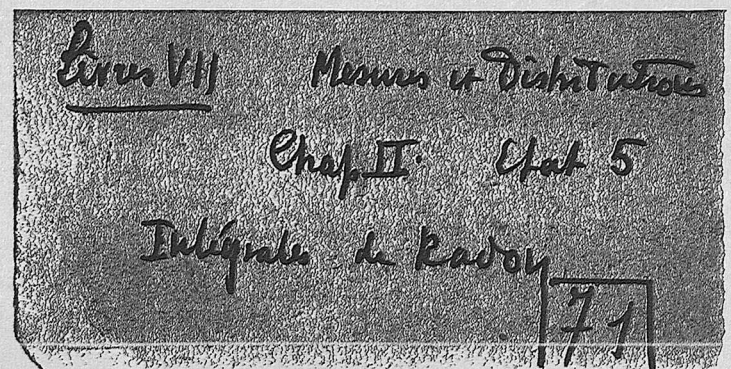 Livres VII Mesures et Distributions
Chap. II. Etat 5
Intégrales de Radon
71